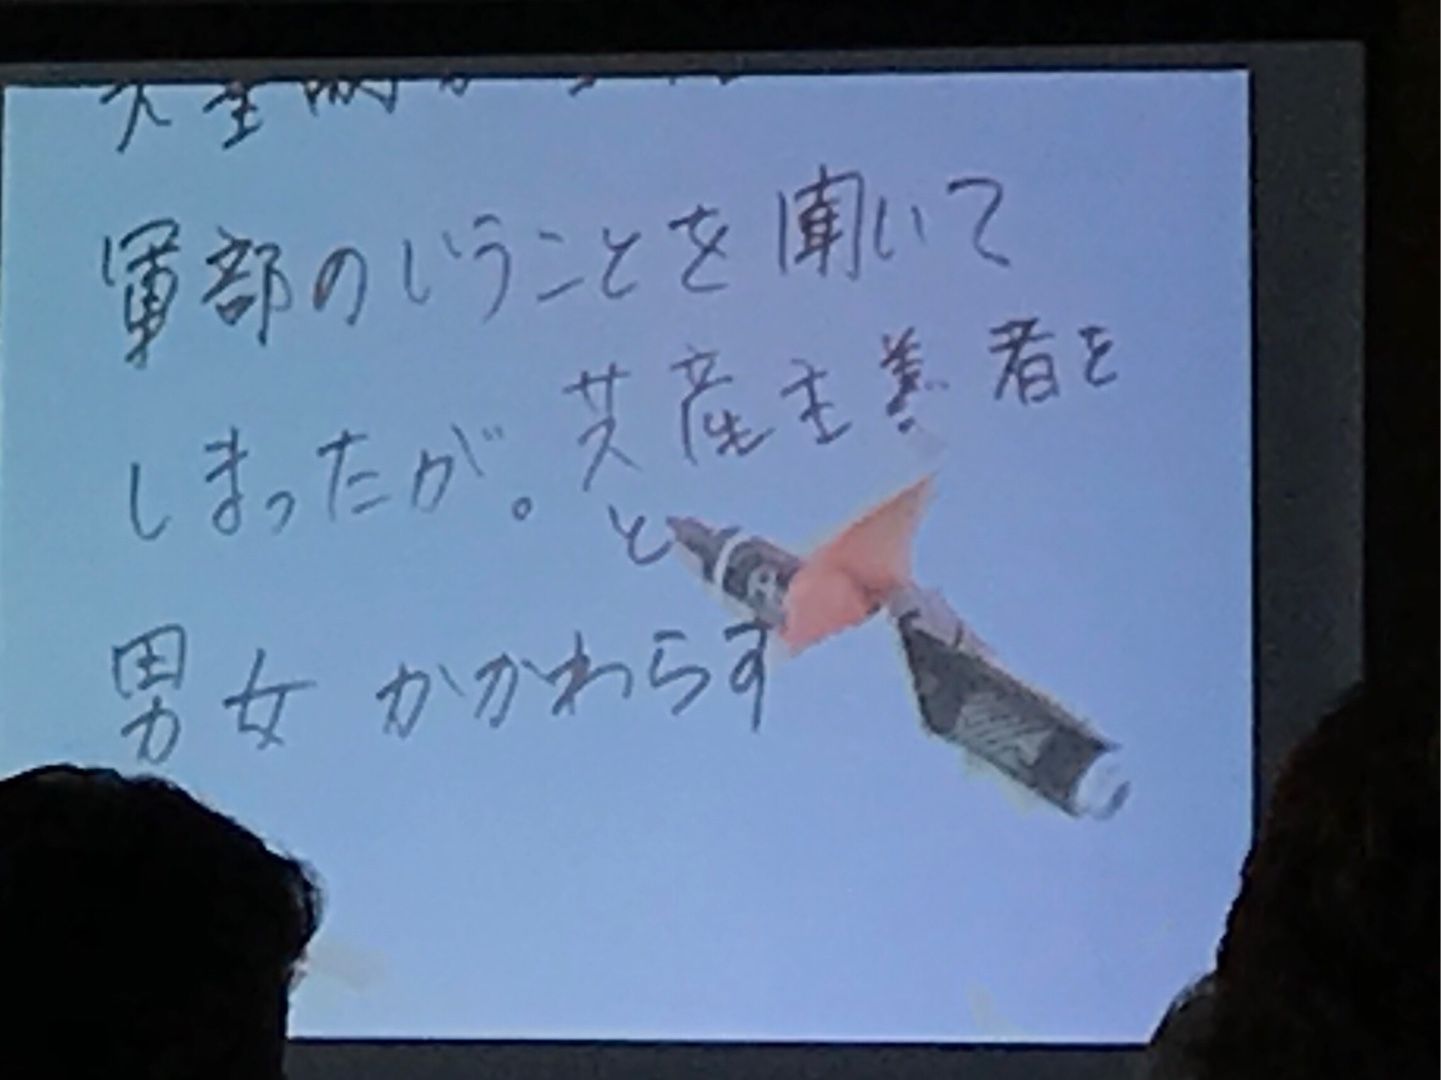 軍部のいうことを聞いて
しまったが。共産主義者を
と
男女かかわらず